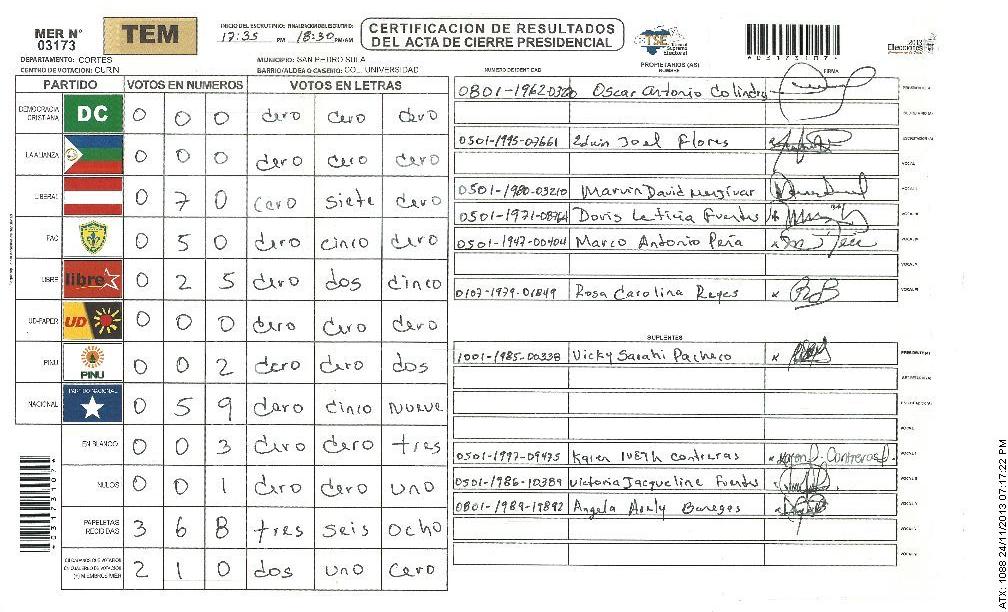 MER N° 03173
TEM
INICIO DEL ESCRUTINIO: 17:35 PM 18:30 PM/AM
CERTIFICACION DE RESULTADOS DEL ACTA DE CIERRE PRESIDENCIAL
TSE Tribunal Supremo Electoral
*03173107*
2013 Elecciones
DEPARTAMENTO: CORTES
MUNICIPIO: SAN PEDRO SULA
CENTRO DE VOTACION: CURN
BARRIO/ALDEA O CASERIO: COL. UNIVERSIDAD
PARTIDO VOTOS EN NUMEROS VOTOS EN LETRAS
DEMOCRACIA CRISTIANA DC 0 0 0 cero cero cero
LA ALIANZA 0 0 0 cero cero cero
LIBERAL 0 7 0 cero siete cero
PAC 0 5 0 cero cinco cero
LIBRE libre 0 2 5 cero dos cinco
UD-FAPER UD 0 0 0 cero cero cero
PINU PINU 0 0 2 cero cero dos
NACIONAL PARTIDO NACIONAL 0 5 9 cero cinco nueve
EN BLANCO 0 0 3 cero cero tres
NULOS 0 0 1 cero cero uno
PAPELETAS RECIBIDAS 3 6 8 tres seis ocho
2 1 0 dos uno cero
*03173107*
PROPIETARIOS (AS)
NUMERO DE IDENTIDAD NOMBRE FIRMA
0801-1962-03220 Oscar Antonio Colindres
0501-1995-07661 Edwin Joel Flores
0501-1980-03210 Marvin David
0501-1971-08764 Doris Leticia Fuentes
0501-1947-00404 Marco Antonio Peña
0107-1979-01849 Rosa Carolina Reyes
SUPLENTES
1001-1985-00338 Vicky Sarahi Pacheco
0501-1997-09475 Karen Contreras
0501-1986-10389 Victoria Jacqueline Fuentes
0801-1989-19892 Angela
ATX: 1088 24/11/2013 07:17:22 PM